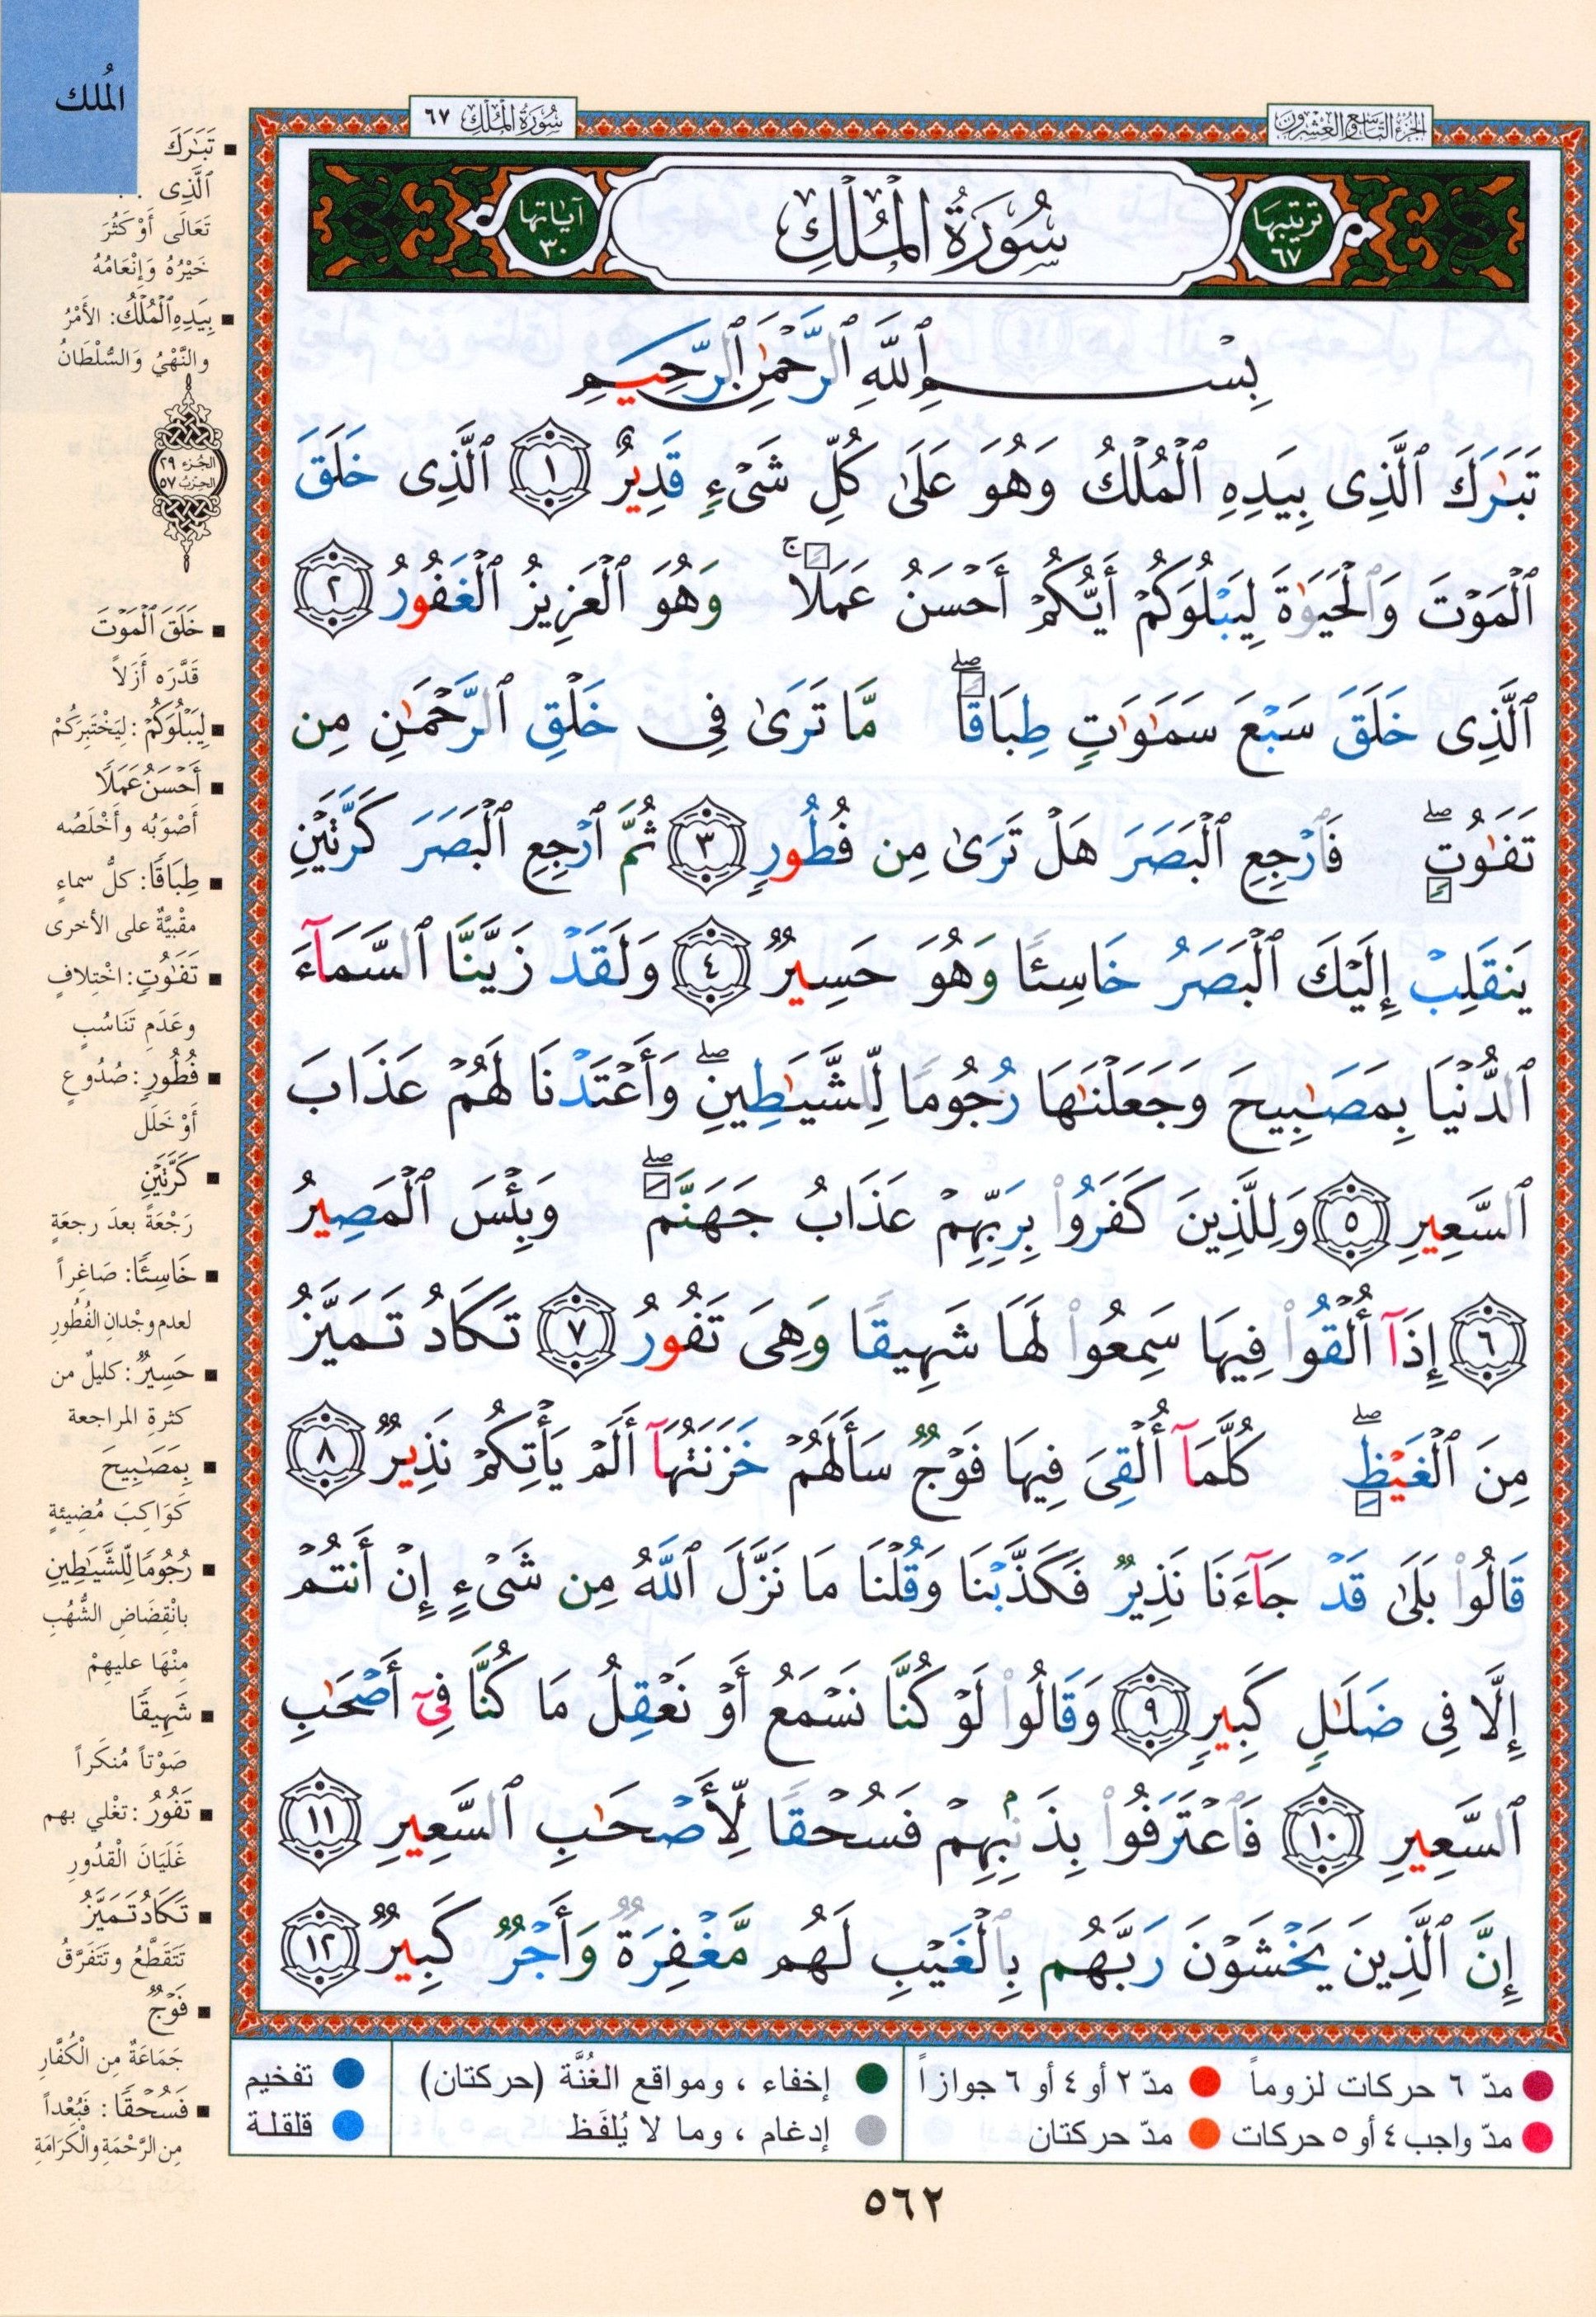 المُلك
الجُزءُ التَّاسِعُ وَالعِشْرُون
سُورَةُ المُلْكِ ٦٧
ترتيبها ٦٧
سُورَةُ المُلْكِ
آياتها ٣٠
بِسْمِ ٱللَّهِ ٱلرَّحْمَٰنِ ٱلرَّحِيمِ
تَبَٰرَكَ ٱلَّذِى بِيَدِهِ ٱلْمُلْكُ وَهُوَ عَلَىٰ كُلِّ شَىْءٍ قَدِيرٌ ١ ٱلَّذِى خَلَقَ
ٱلْمَوْتَ وَٱلْحَيَوٰةَ لِيَبْلُوَكُمْ أَيُّكُمْ أَحْسَنُ عَمَلًا ۚ وَهُوَ ٱلْعَزِيزُ ٱلْغَفُورُ ٢
ٱلَّذِى خَلَقَ سَبْعَ سَمَٰوَٰتٍ طِبَاقًا ۖ مَّا تَرَىٰ فِى خَلْقِ ٱلرَّحْمَٰنِ مِن
تَفَٰوُتٍ ۖ فَٱرْجِعِ ٱلْبَصَرَ هَلْ تَرَىٰ مِن فُطُورٍ ٣ ثُمَّ ٱرْجِعِ ٱلْبَصَرَ كَرَّتَيْنِ
يَنقَلِبْ إِلَيْكَ ٱلْبَصَرُ خَاسِئًا وَهُوَ حَسِيرٌ ٤ وَلَقَدْ زَيَّنَّا ٱلسَّمَآءَ
ٱلدُّنْيَا بِمَصَٰبِيحَ وَجَعَلْنَٰهَا رُجُومًا لِّلشَّيَٰطِينِ ۖ وَأَعْتَدْنَا لَهُمْ عَذَابَ
ٱلسَّعِيرِ ٥ وَلِلَّذِينَ كَفَرُوا۟ بِرَبِّهِمْ عَذَابُ جَهَنَّمَ ۖ وَبِئْسَ ٱلْمَصِيرُ
٦ إِذَآ أُلْقُوا۟ فِيهَا سَمِعُوا۟ لَهَا شَهِيقًا وَهِىَ تَفُورُ ٧ تَكَادُ تَمَيَّزُ
مِنَ ٱلْغَيْظِ ۖ كُلَّمَآ أُلْقِىَ فِيهَا فَوْجٌ سَأَلَهُمْ خَزَنَتُهَآ أَلَمْ يَأْتِكُمْ نَذِيرٌ ٨
قَالُوا۟ بَلَىٰ قَدْ جَآءَنَا نَذِيرٌ فَكَذَّبْنَا وَقُلْنَا مَا نَزَّلَ ٱللَّهُ مِن شَىْءٍ إِنْ أَنتُمْ
إِلَّا فِى ضَلَٰلٍ كَبِيرٍ ٩ وَقَالُوا۟ لَوْ كُنَّا نَسْمَعُ أَوْ نَعْقِلُ مَا كُنَّا فِىٓ أَصْحَٰبِ
ٱلسَّعِيرِ ١٠ فَٱعْتَرَفُوا۟ بِذَنۢبِهِمْ فَسُحْقًا لِّأَصْحَٰبِ ٱلسَّعِيرِ ١١
إِنَّ ٱلَّذِينَ يَخْشَوْنَ رَبَّهُم بِٱلْغَيْبِ لَهُم مَّغْفِرَةٌ وَأَجْرٌ كَبِيرٌ ١٢
▪ تَبَٰرَكَ
ٱلَّذِى . .
تَعَالَى أَوْ كَثُرَ
خَيْرُهُ وَإِنْعَامُهُ
▪ بِيَدِهِ ٱلْمُلْكُ: الأَمْرُ
والنَّهْيُ وَالسُّلْطَانُ
الجُزء ٢٩
الحِزب ٥٧
▪ خَلَقَ ٱلْمَوْتَ
قَدَّرَه أَزَلاً
▪ لِيَبْلُوَكُمْ: لِيَخْتَبِرَكُمْ
▪ أَحْسَنُ عَمَلًا
أَصْوَبُه وأَخْلَصُه
▪ طِبَاقًا: كلُّ سماءٍ
مقْبِيَّةٌ على الأخرى
▪ تَفَٰوُتٍ: اخْتِلافٍ
وعَدَمِ تَنَاسُبٍ
▪ فُطُورٍ: صُدُوعٍ
أَوْ خَلَل
▪ كَرَّتَيْنِ
رَجْعَةً بعدَ رجعَةٍ
▪ خَاسِئًا: صَاغِراً
لعدم وجْدانِ الفُطُورِ
▪ حَسِيرٌ: كليلٌ من
كثرةِ المراجعة
▪ بِمَصَٰبِيحَ
كَوَاكِبَ مُضِيئةٍ
▪ رُجُومًا لِّلشَّيَٰطِينِ
بانْقِضَاضِ الشُّهُبِ
مِنْهَا عليهِمْ
▪ شَهِيقًا
صَوْتاً مُنكَراً
▪ تَفُورُ: تغْلي بهم
غَلَيَانَ الْقدُورِ
▪ تَكَادُ تَمَيَّزُ
تَتَقَطَّعُ وتَتَفَرَّقُ
▪ فَوْجٌ
جَمَاعَةٌ مِن الْكُفَّارِ
▪ فَسُحْقًا: فَبُعْداً
مِن الرَّحْمَةِ والْكَرَامَةِ
مدّ ٦ حركات لزوماً مدّ ٢ أو ٤ أو ٦ جوازاً
مدّ واجب ٤ أو ٥ حركات مدّ حركتان
إخفاء ، ومواقع الغُنَّة (حركتان)
إدغام ، وما لا يُلفَظ
تفخيم
قلقلة
٥٦٢